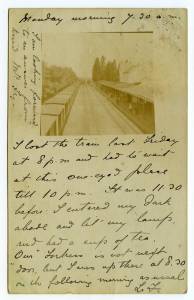 Monday morning 7.30 a.m.
I am looking forward
to an answer from
I lost the train last Friday
at 8 p m and had to wait
at this one-eyed place
till 10 p.m. It was 11.30
before I entered my dark
abode and lit my lamp
and had a cup of tea.
Our Corkers is not left
door, but I was up there at 8.30
on the following morning as usual